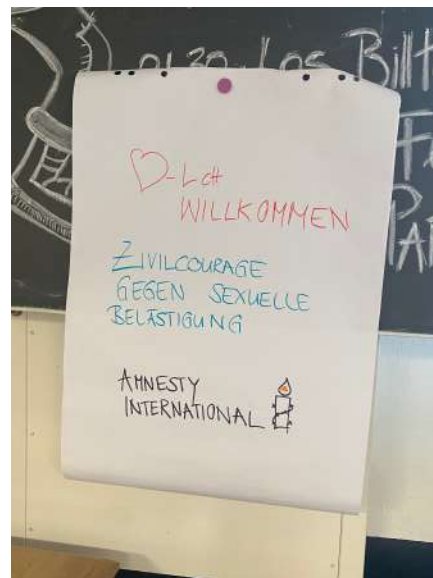 01.30 Los Bill
♡-LCH
WILLKOMMEN
ZIVILCOURAGE
GEGEN SEXUELLE
BELÄSTIGUNG
AMNESTY
INTERNATIONAL